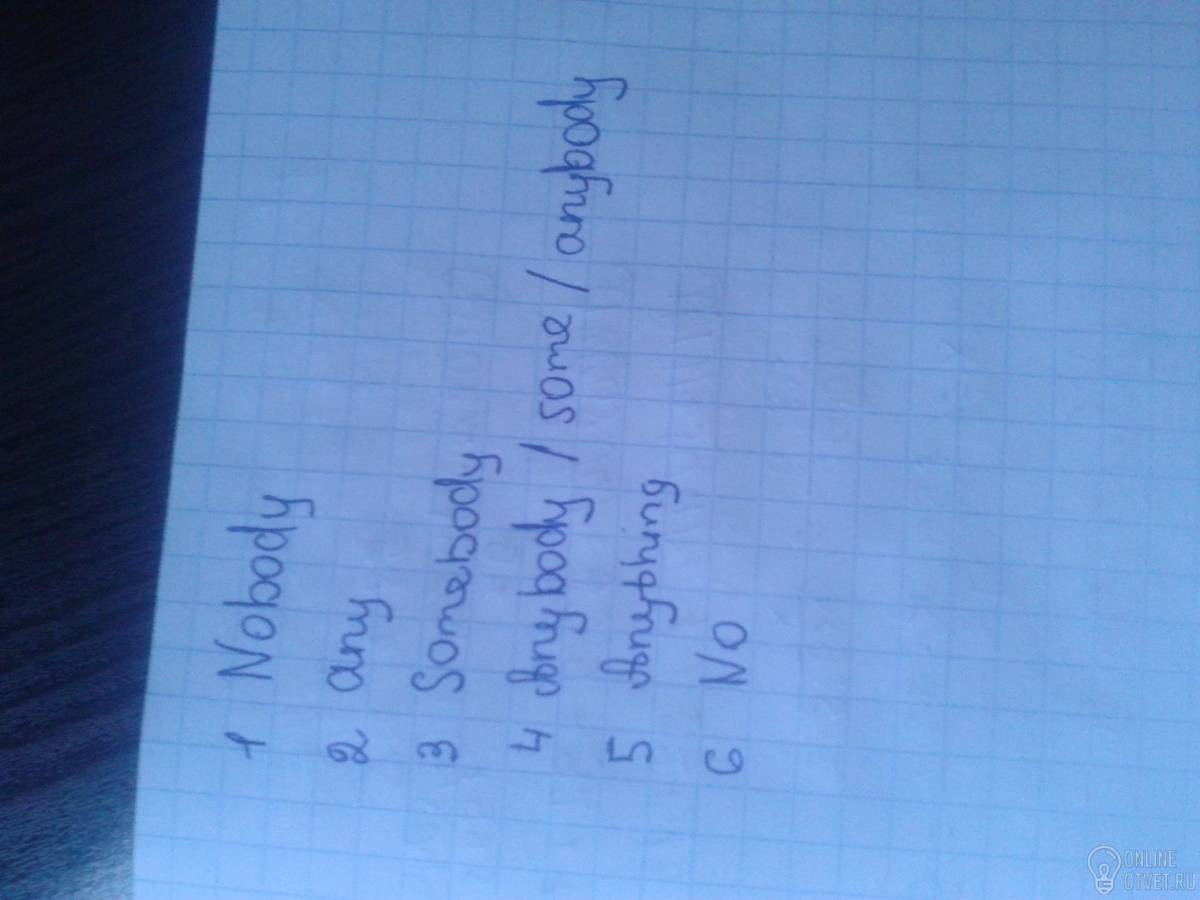 1 Nobody
2 any
3 Somebody
4 Anybody / some / anybody
5 Anything
6 No
ONLINE
OTVET.RU